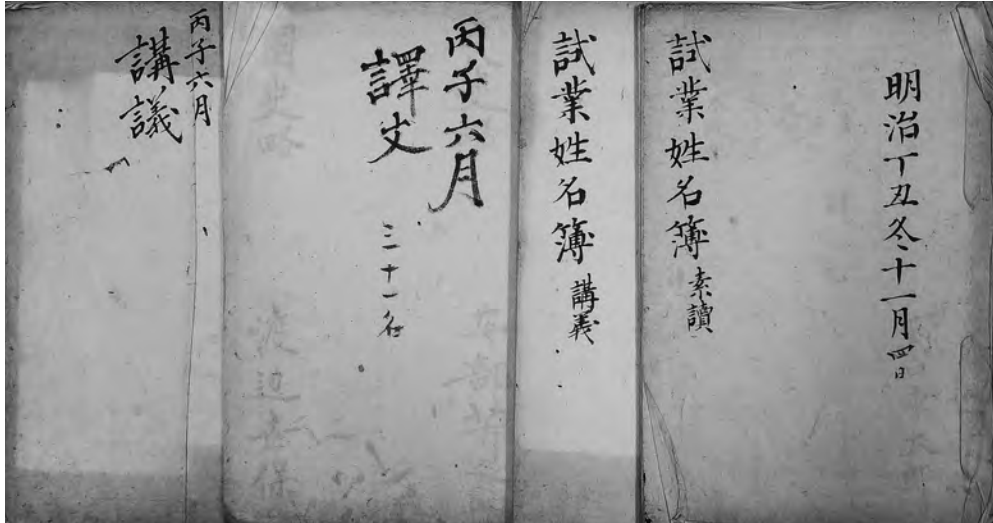 明治丁丑冬十一月四日
試業姓名簿 素讀
試業姓名簿 講義
丙子六月
譯文
三十一名
丙子六月
講議